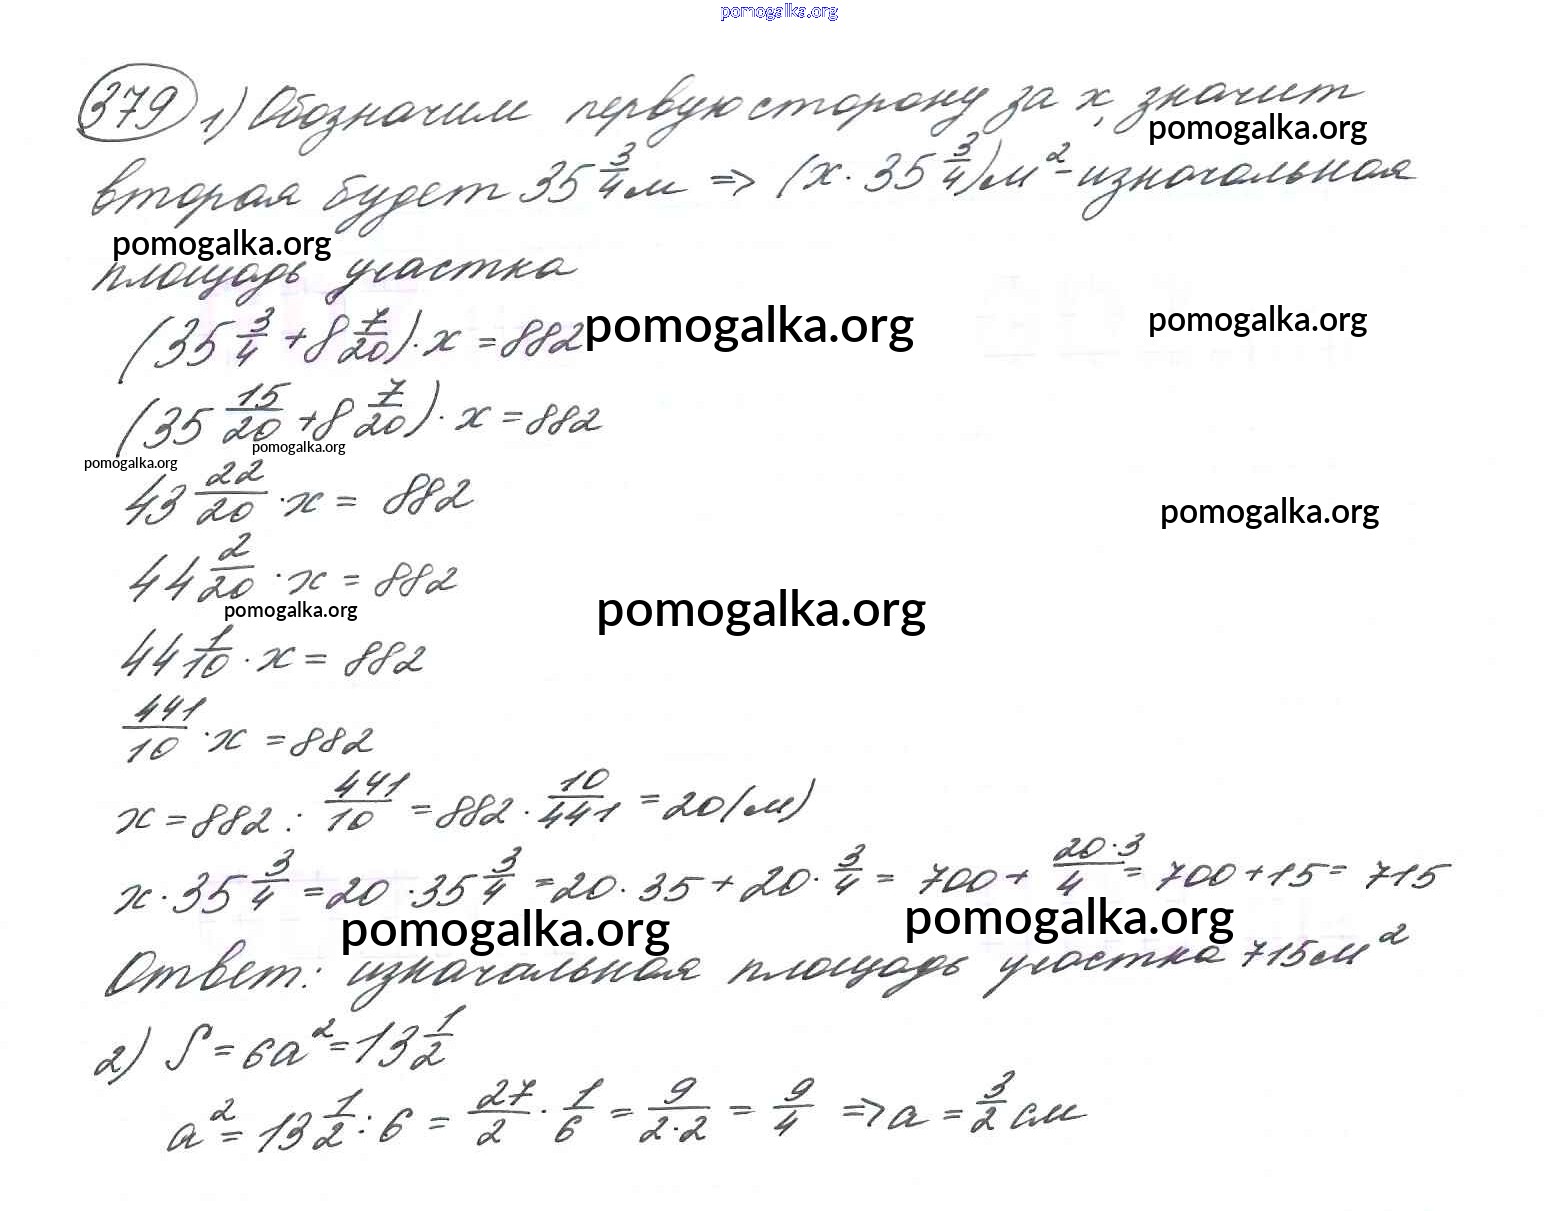 pomogalka.org
379 1) Обозначим первую сторону за x, значит
pomogalka.org
вторая будет 35 3/4 м => (x · 35 3/4) м² - изначальная
pomogalka.org
площадь участка
(35 3/4 + 8 7/20) · x = 882
pomogalka.org
pomogalka.org
(35 15/20 + 8 7/20) · x = 882
pomogalka.org
pomogalka.org
43 22/20 · x = 882
pomogalka.org
44 2/20 · x = 882
pomogalka.org
pomogalka.org
44 1/10 · x = 882
441/10 · x = 882
x = 882 : 441/10 = 882 · 10/441 = 20 (м)
x · 35 3/4 = 20 · 35 3/4 = 20 · 35 + 20 · 3/4 = 700 + 20·3/4 = 700 + 15 = 715
pomogalka.org
pomogalka.org
Ответ: изначальная площадь участка 715 м²
2) S = 6a² = 13 1/2
a² = 13 1/2 : 6 = 27/2 · 1/6 = 9/2·2 = 9/4 => a = 3/2 см